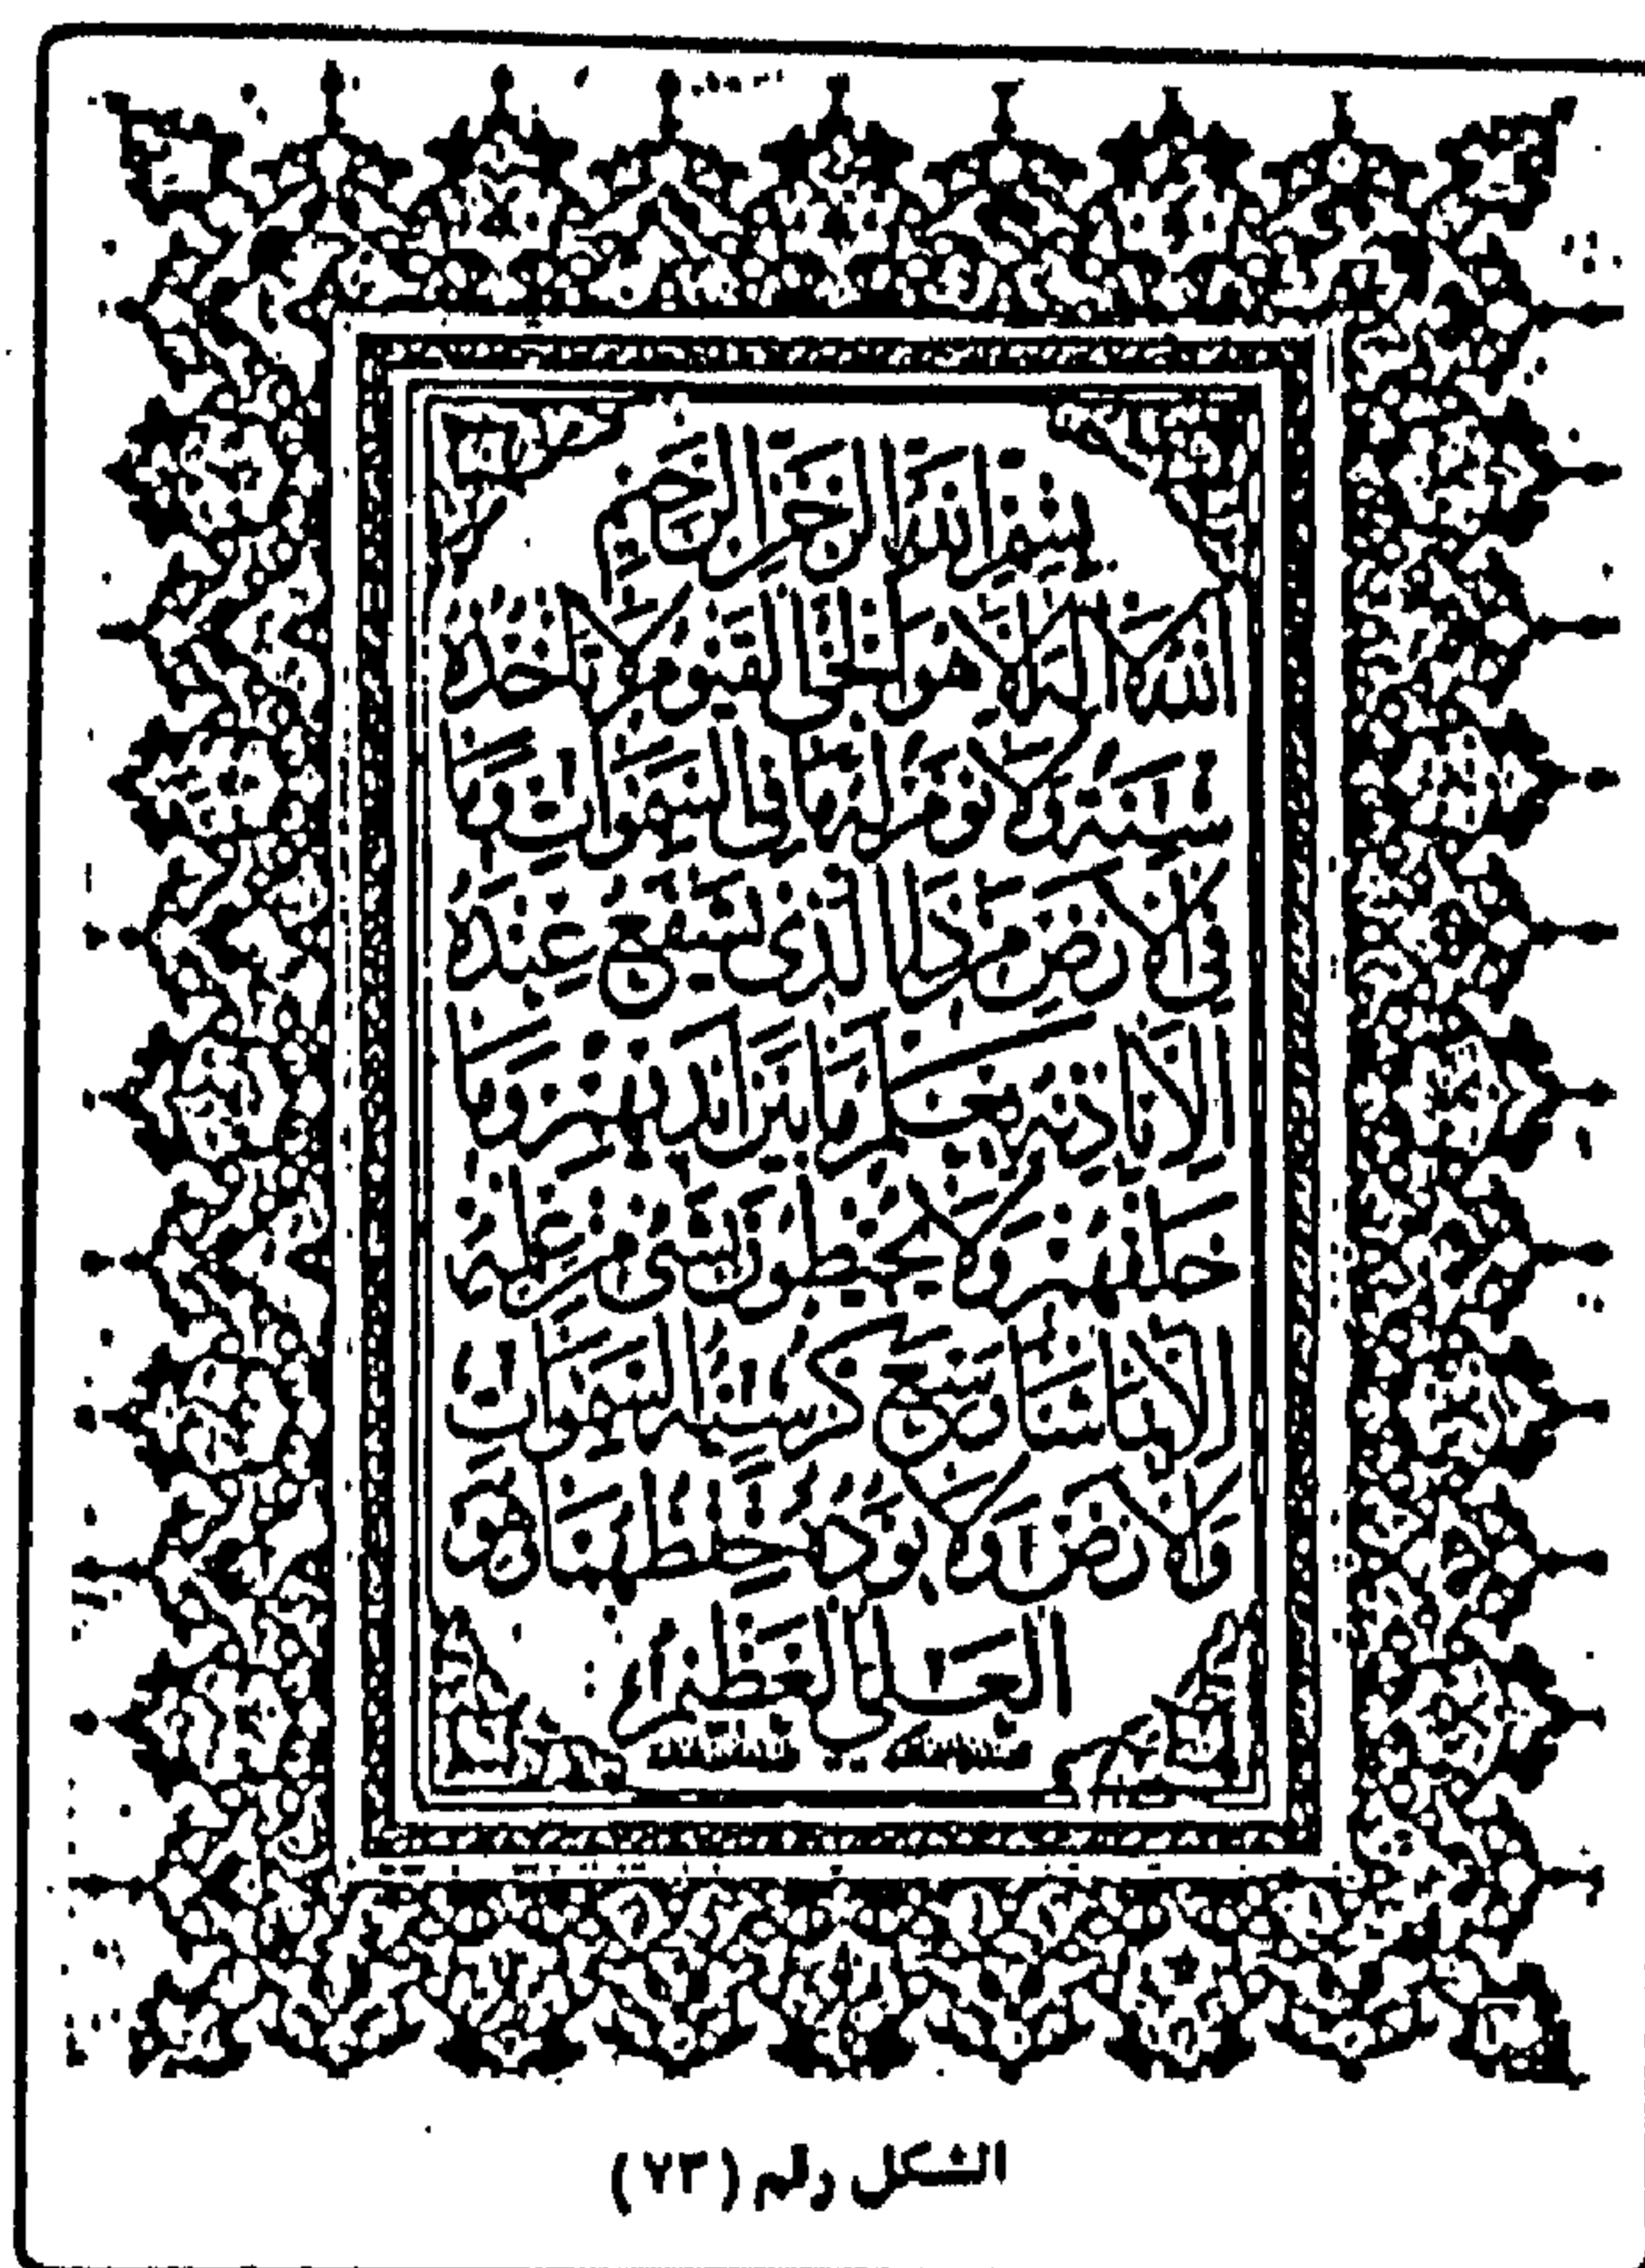 بسم الله الرحمن الرحيم
الله لا اله الا هو الحي القيوم لا تأخذه
سنة ولا نوم له ما في السموات وما
في الارض من ذا الذي يشفع عنده
الا باذنه يعلم ما بين ايديهم وما
خلفهم ولا يحيطون بشيء من علمه
الا بما شاء وسع كرسيه السموات
والارض ولا يؤده حفظهما وهو
العلي العظيم
الشكل رقم (٧٣)